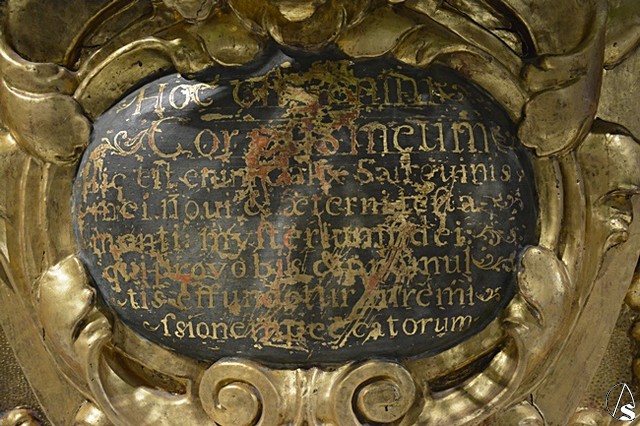 Hoc est enim
Corpus meum
hic est enim calix Sanguinis
mei. noui, & æterni testa
menti: mysterium fidei:
qui pro vobis et pro mul
tis effundetur in remi
ssionem peccatorum